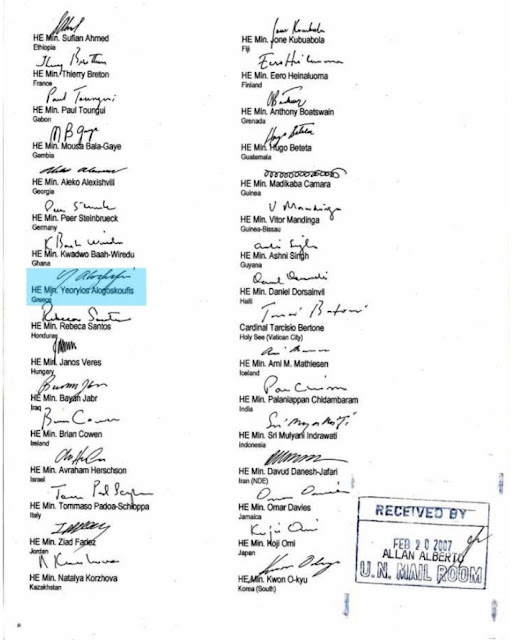 HE Min. Sufian Ahmed
Ethiopia
HE Min. Thierry Breton
France
HE Min. Paul Toungui
Gabon
HE Min. Mousa Bala-Gaye
Gambia
HE Min. Aleko Alexishvili
Georgia
HE Min. Peer Steinbrueck
Germany
HE Min. Kwadwo Baah-Wiredu
Ghana
HE Min. Yeoryios Alogoskoufis
Greece
HE Min. Rebeca Santos
Honduras
HE Min. Janos Veres
Hungary
HE Min. Bayan Jabr
Iraq
HE Min. Brian Cowen
Ireland
HE Min. Avraham Herschson
Israel
HE Min. Tommaso Padoa-Schioppa
Italy
HE Min. Ziad Fariez
Jordan
HE Min. Natalya Korzhova
Kazakhstan
HE Min. Jone Kubuabola
Fiji
HE Min. Eero Heinaluoma
Finland
HE Min. Anthony Boatswain
Grenada
HE Min. Hugo Beteta
Guatemala
HE Min. Madikaba Camara
Guinea
HE Min. Vitor Mandinga
Guinea-Bissau
HE Min. Ashni Singh
Guyana
HE Min. Daniel Dorsainvil
Haiti
Cardinal Tarcisio Bertone
Holy See (Vatican City)
HE Min. Arni M. Mathiesen
Iceland
HE Min. Palaniappan Chidambaram
India
HE Min. Sri Mulyani Indrawati
Indonesia
HE Min. Davud Danesh-Jafari
Iran (NDE)
HE Min. Omar Davies
Jamaica
HE Min. Koji Omi
Japan
HE Min. Kwon O-kyu
Korea (South)
RECEIVED BY
FEB 20 2007
ALLAN ALBERTO
U.N. MAIL ROOM